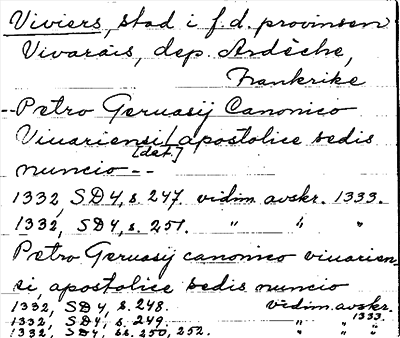 Viviers, stad i f.d. provinsen
Vivarais, dep. Ardèche,
Frankrike
-- Petro Geruasij Canonico
Viuariensi/apostolice sedis
[det.]
nuncio --
1332, SD4, s. 247 vidim. avskr. 1333.
1332, SD4, s. 251. " " "
Petro Geruasij canonico viuarien-
si, apostolice sedis nuncio
1332, SD4, s. 248. vidim. avskr.
1332, SD4, s. 249. " " 1333.
1332, SD4, ss. 250, 252. " " "